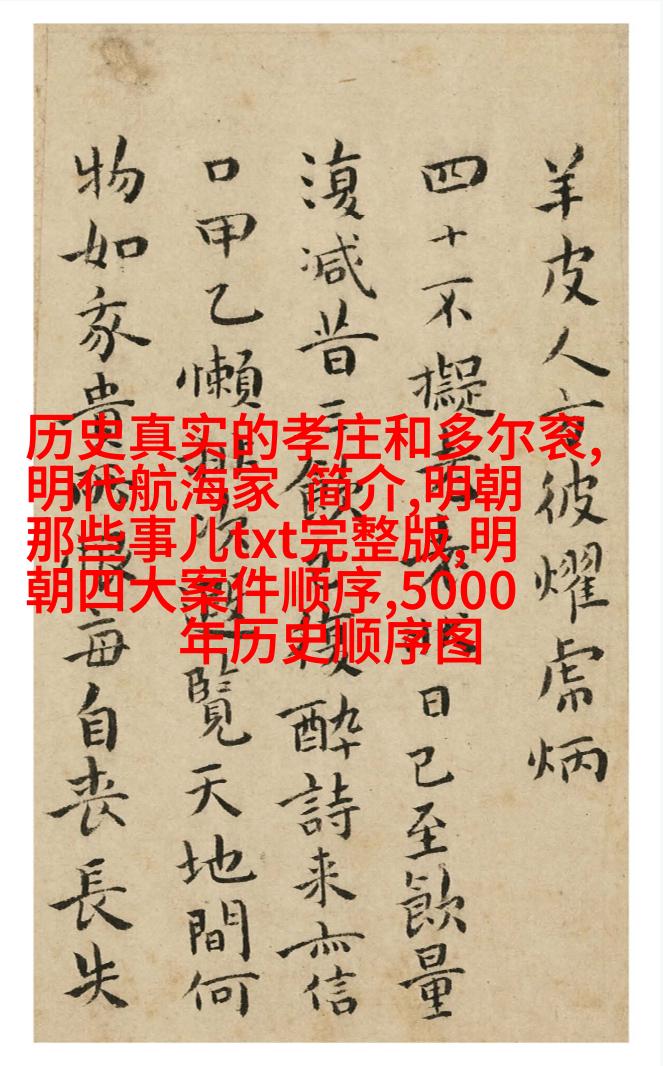 历史真实的孝庄和多尔衮,
明代航海家 简介,明朝
那些事儿txt完整版,明
朝四大案件顺序,5000
年历史顺序图
羊皮人彼燿炳
四十不擬日已至飲量
復减昔三飲復醉詩来亦信
口甲乙懶覽天地間何
物如豕貴每自丧長失